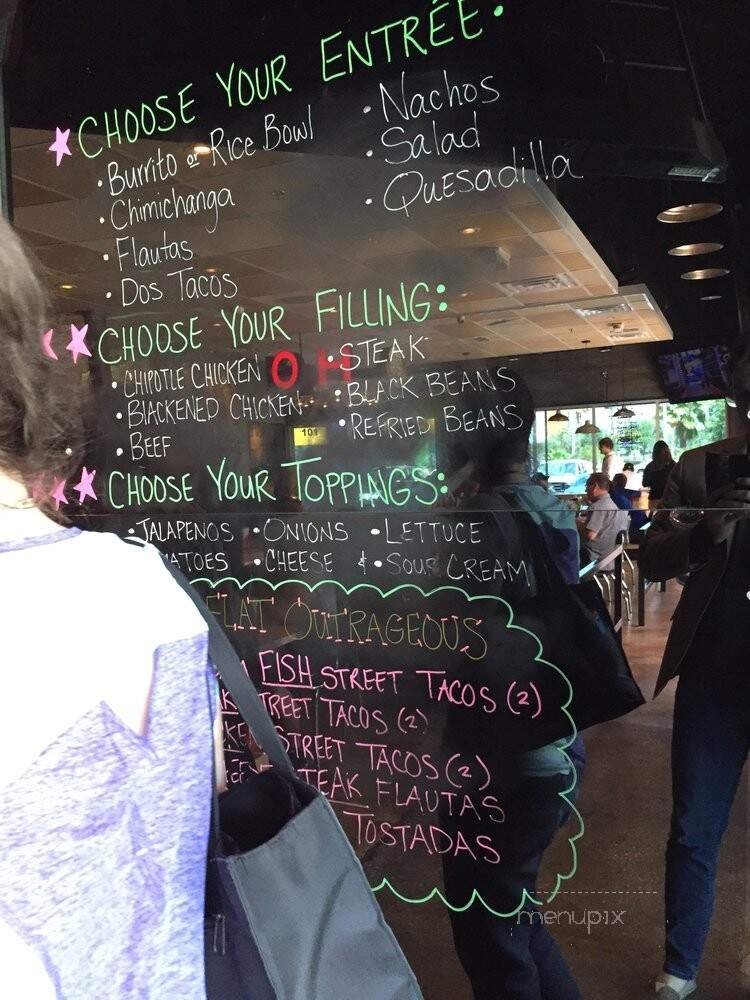 CHOOSE YOUR ENTRÉE:
• Burrito or Rice Bowl
• Chimichanga
• Flautas
• Dos Tacos
• Nachos
• Salad
• Quesadilla
CHOOSE YOUR FILLING:
• CHIPOTLE CHICKEN
• BLACKENED CHICKEN
• BEEF
• STEAK
• BLACK BEANS
• REFRIED BEANS
O H
101
CHOOSE YOUR TOPPINGS:
• JALAPENOS • ONIONS • LETTUCE
ATOES • CHEESE & • SOUR CREAM
FLAT OUTRAGEOUS
FISH STREET TACOS (2)
TREET TACOS (2)
STREET TACOS (2)
STEAK FLAUTAS
TOSTADAS
menupix